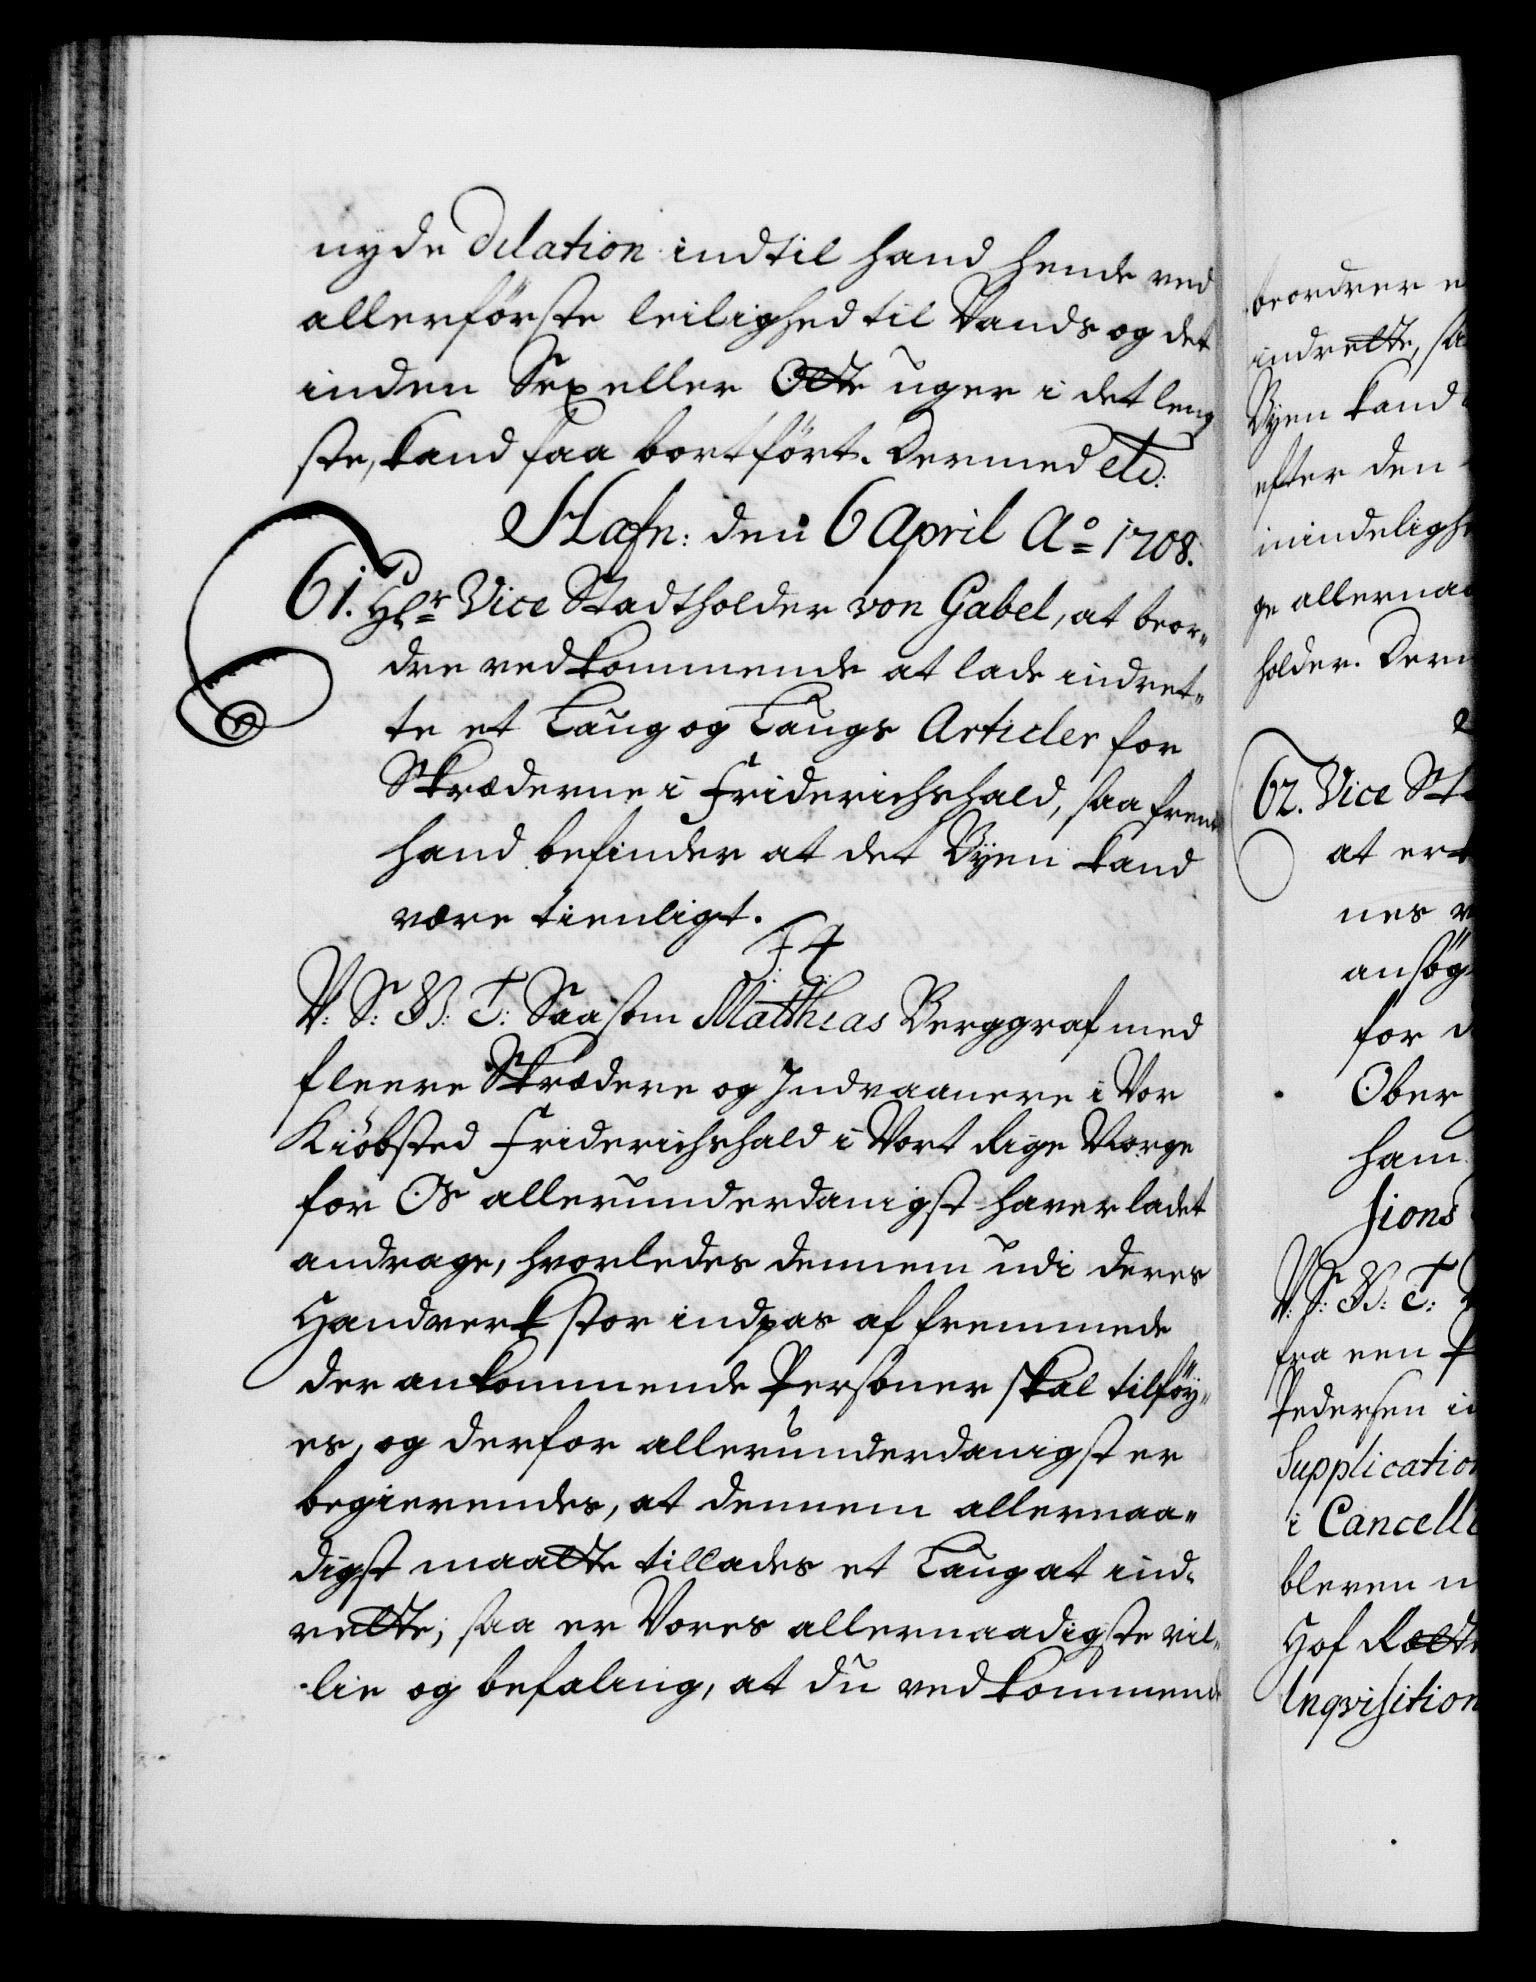 nyde dilation indtil hand hende ved
allerförste leilighed til Vands og det
inden Sex eller Otte uger i det leng
ste, kand faa bortfört. Dermed etc:
Hafn: den 6 April Aº 1708.
61. Hr Vice Stadtholder von Gabel, at beor-
dre vedkommende at lade indret-
te et Laug og Laugs Articler for
Skræderne i Friderichshald, saafremt
hand befinder at det Byen kand
være tienligt.
F 4
V: S: G: T: Saasom Matthias Berggraf med
fleere Skrædere og Indvaanere i Vor
Kiöbsted Friderichshald i Vort Rige Norge
for Os allerunderdanigst haver ladet
andrage, hvorledes dennem udi deres
Handverk stor indpas af fremmede
der ankommende Personer skal tilföy-
es, og derfor allerunderdanigst er
begierendes, at dennem allernaa-
digst maatte tillades et Laug at ind-
rette; saa er Vores allernaadigste vil-
lie og befaling, at du vedkommende
beordrer
indrette, saa
Byen kand
efter den
mindelighe
ge allernaa
holder. Derm
62. Vice Sta
at er
nes
ansög
for
Ober
ham
sions
V: S: G: T:
fra een P
Pedersen i
Supplication
i Cancelli
bleven
Hof Rette
Inqvisition